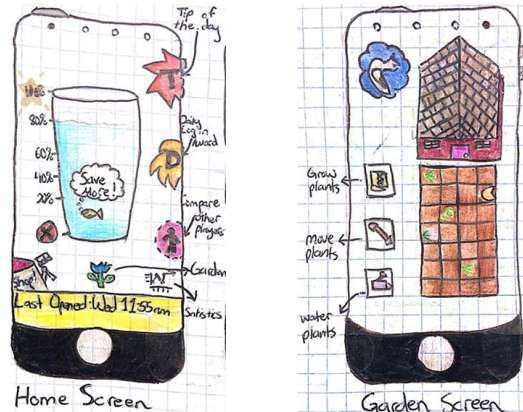 Tip of
the day
T
80%
60%
40%
20%
Save
More!
Daily
Log in
D
Compare
other
players
Garden
Shop
Statistics
Last Opened: Wed 11:55am
Home Screen
Grow
plants
Move
plants
water
plants
Garden Screen